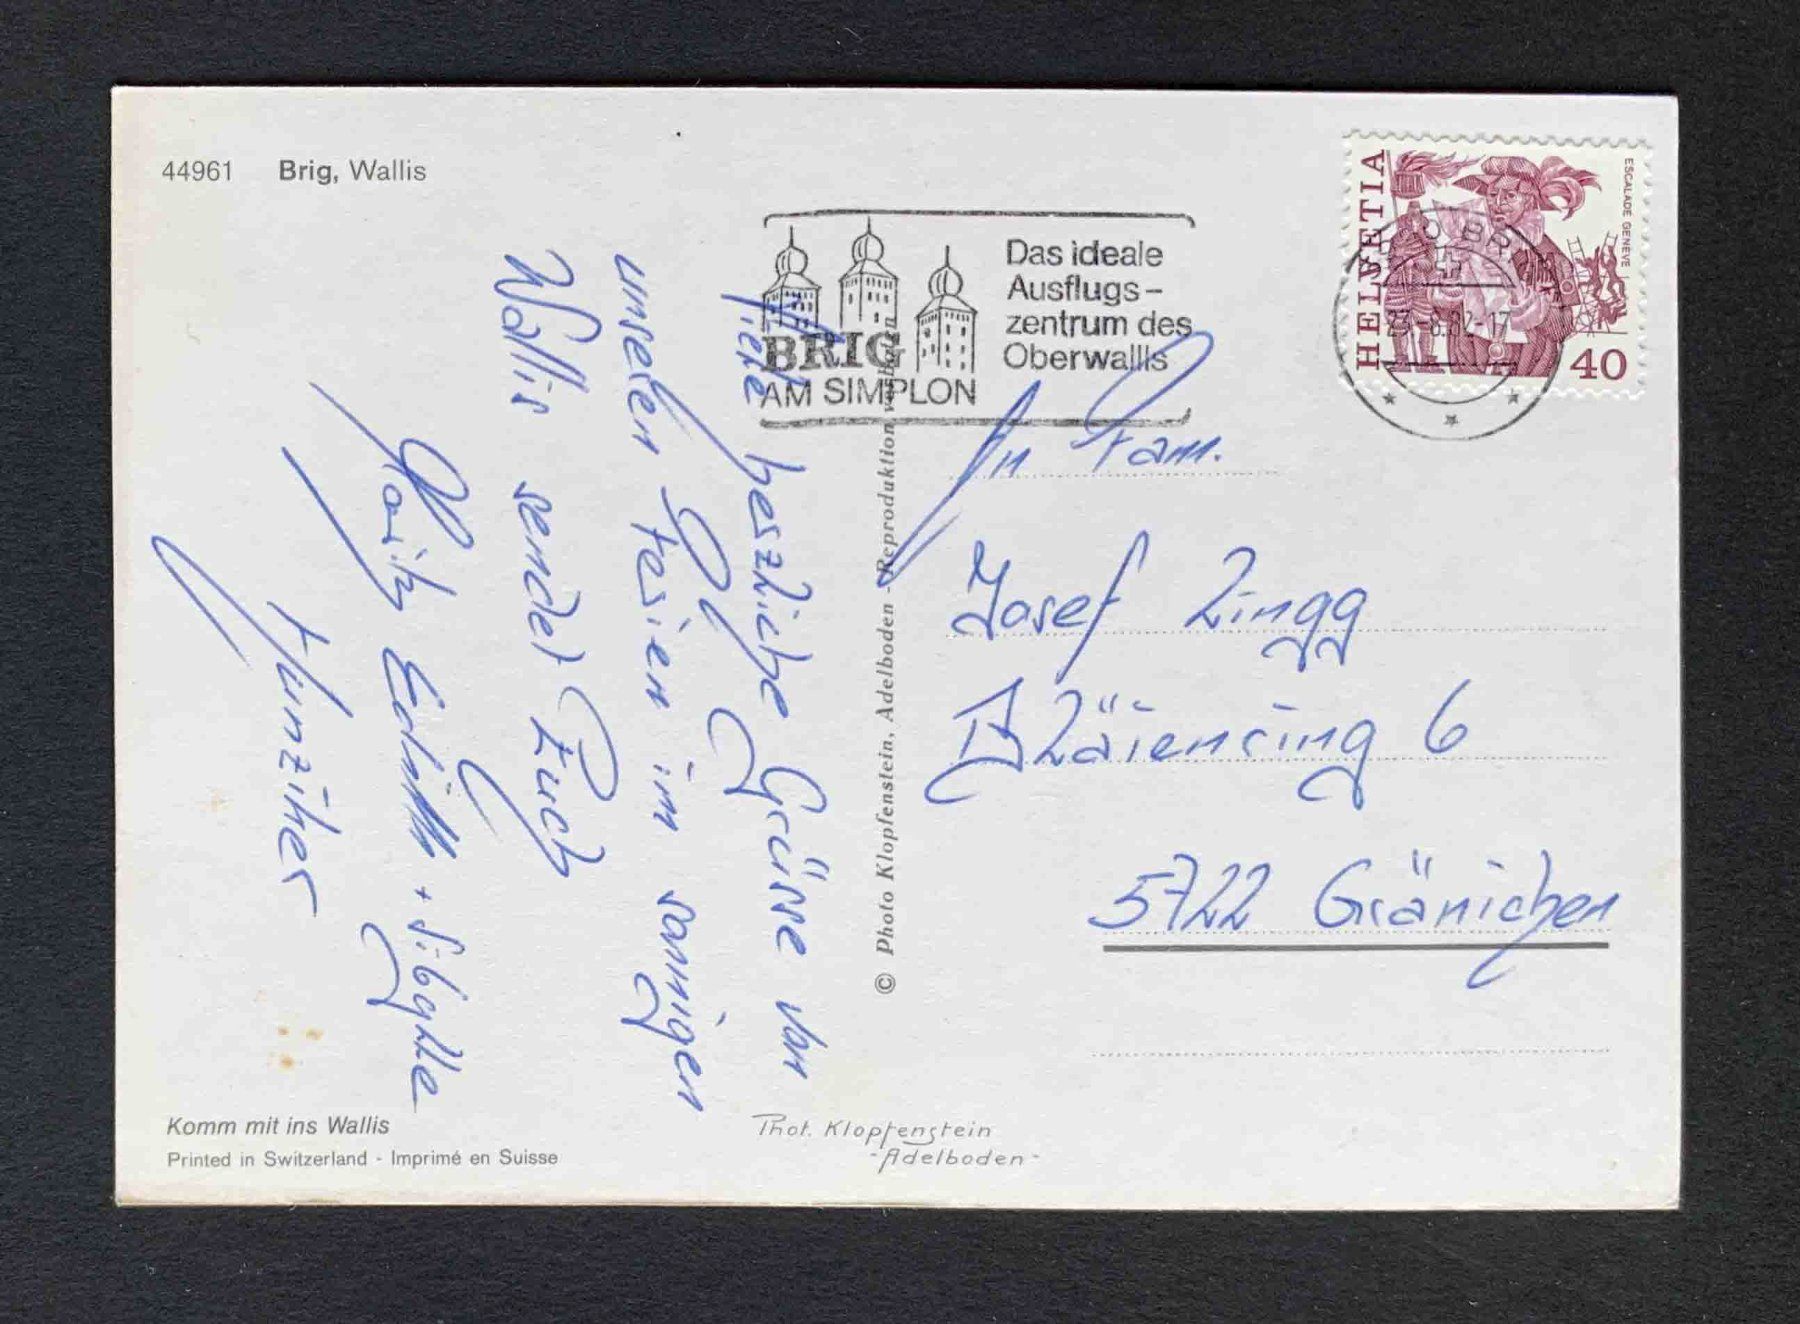 44961 Brig, Wallis
BRIG
AM SIMPLON
Das ideale
Ausflugs-
zentrum des
Oberwallis
HELVETIA
ESCALADE GENÈVE
40
Viele herzliche Grüsse von
unseren Ferien im sonnigen
Wallis sendet Euch
Edith + Sibylle
Hunziker
An Fam.
Josef Zingg
Bläienring 6
5722 Gränichen
© Photo Klopfenstein, Adelboden - Reproduktion verboten
Komm mit ins Wallis
Printed in Switzerland - Imprimé en Suisse
Phot. Klopfenstein
-Adelboden-